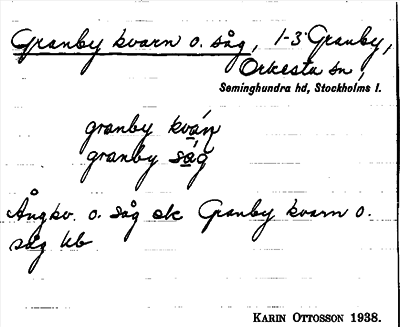 Granby kvarn o. såg, 1-3 Granby,
Orkesta sn,
Seminghundra hd, Stockholms l.
granby kván
granby såg
Ångkv. o. såg ek Granby kvarn o.
såg hb
KARIN OTTOSSON 1938.